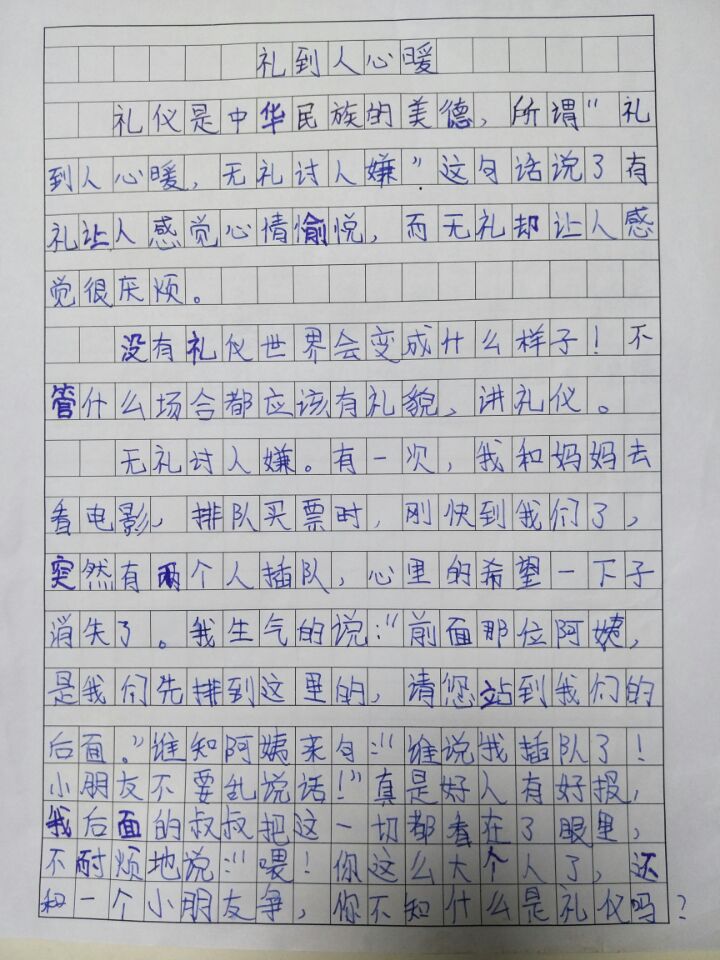 礼到人心暖
礼仪是中华民族的美德，所谓"礼
到人心暖，无礼讨人嫌"这句话说了有
礼让人感觉心情愉悦，而无礼却让人感
觉很厌烦。
没有礼仪世界会变成什么样子！不
管什么场合都应该有礼貌，讲礼仪。
无礼讨人嫌。有一次，我和妈妈去
看电影，排队买票时，刚快到我们了，
突然有两个人插队，心里的希望一下子
消失了。我生气的说："前面那位阿姨，
是我们先排到这里的，请您站到我们的
后面。"谁知阿姨来句："谁说我插队了！
小朋友不要乱说话！"真是好人有好报，
我后面的叔叔把这一切都看在了眼里，
不耐烦地说："喂！你这么大个人了，还
和一个小朋友争，你不知什么是礼仪吗？